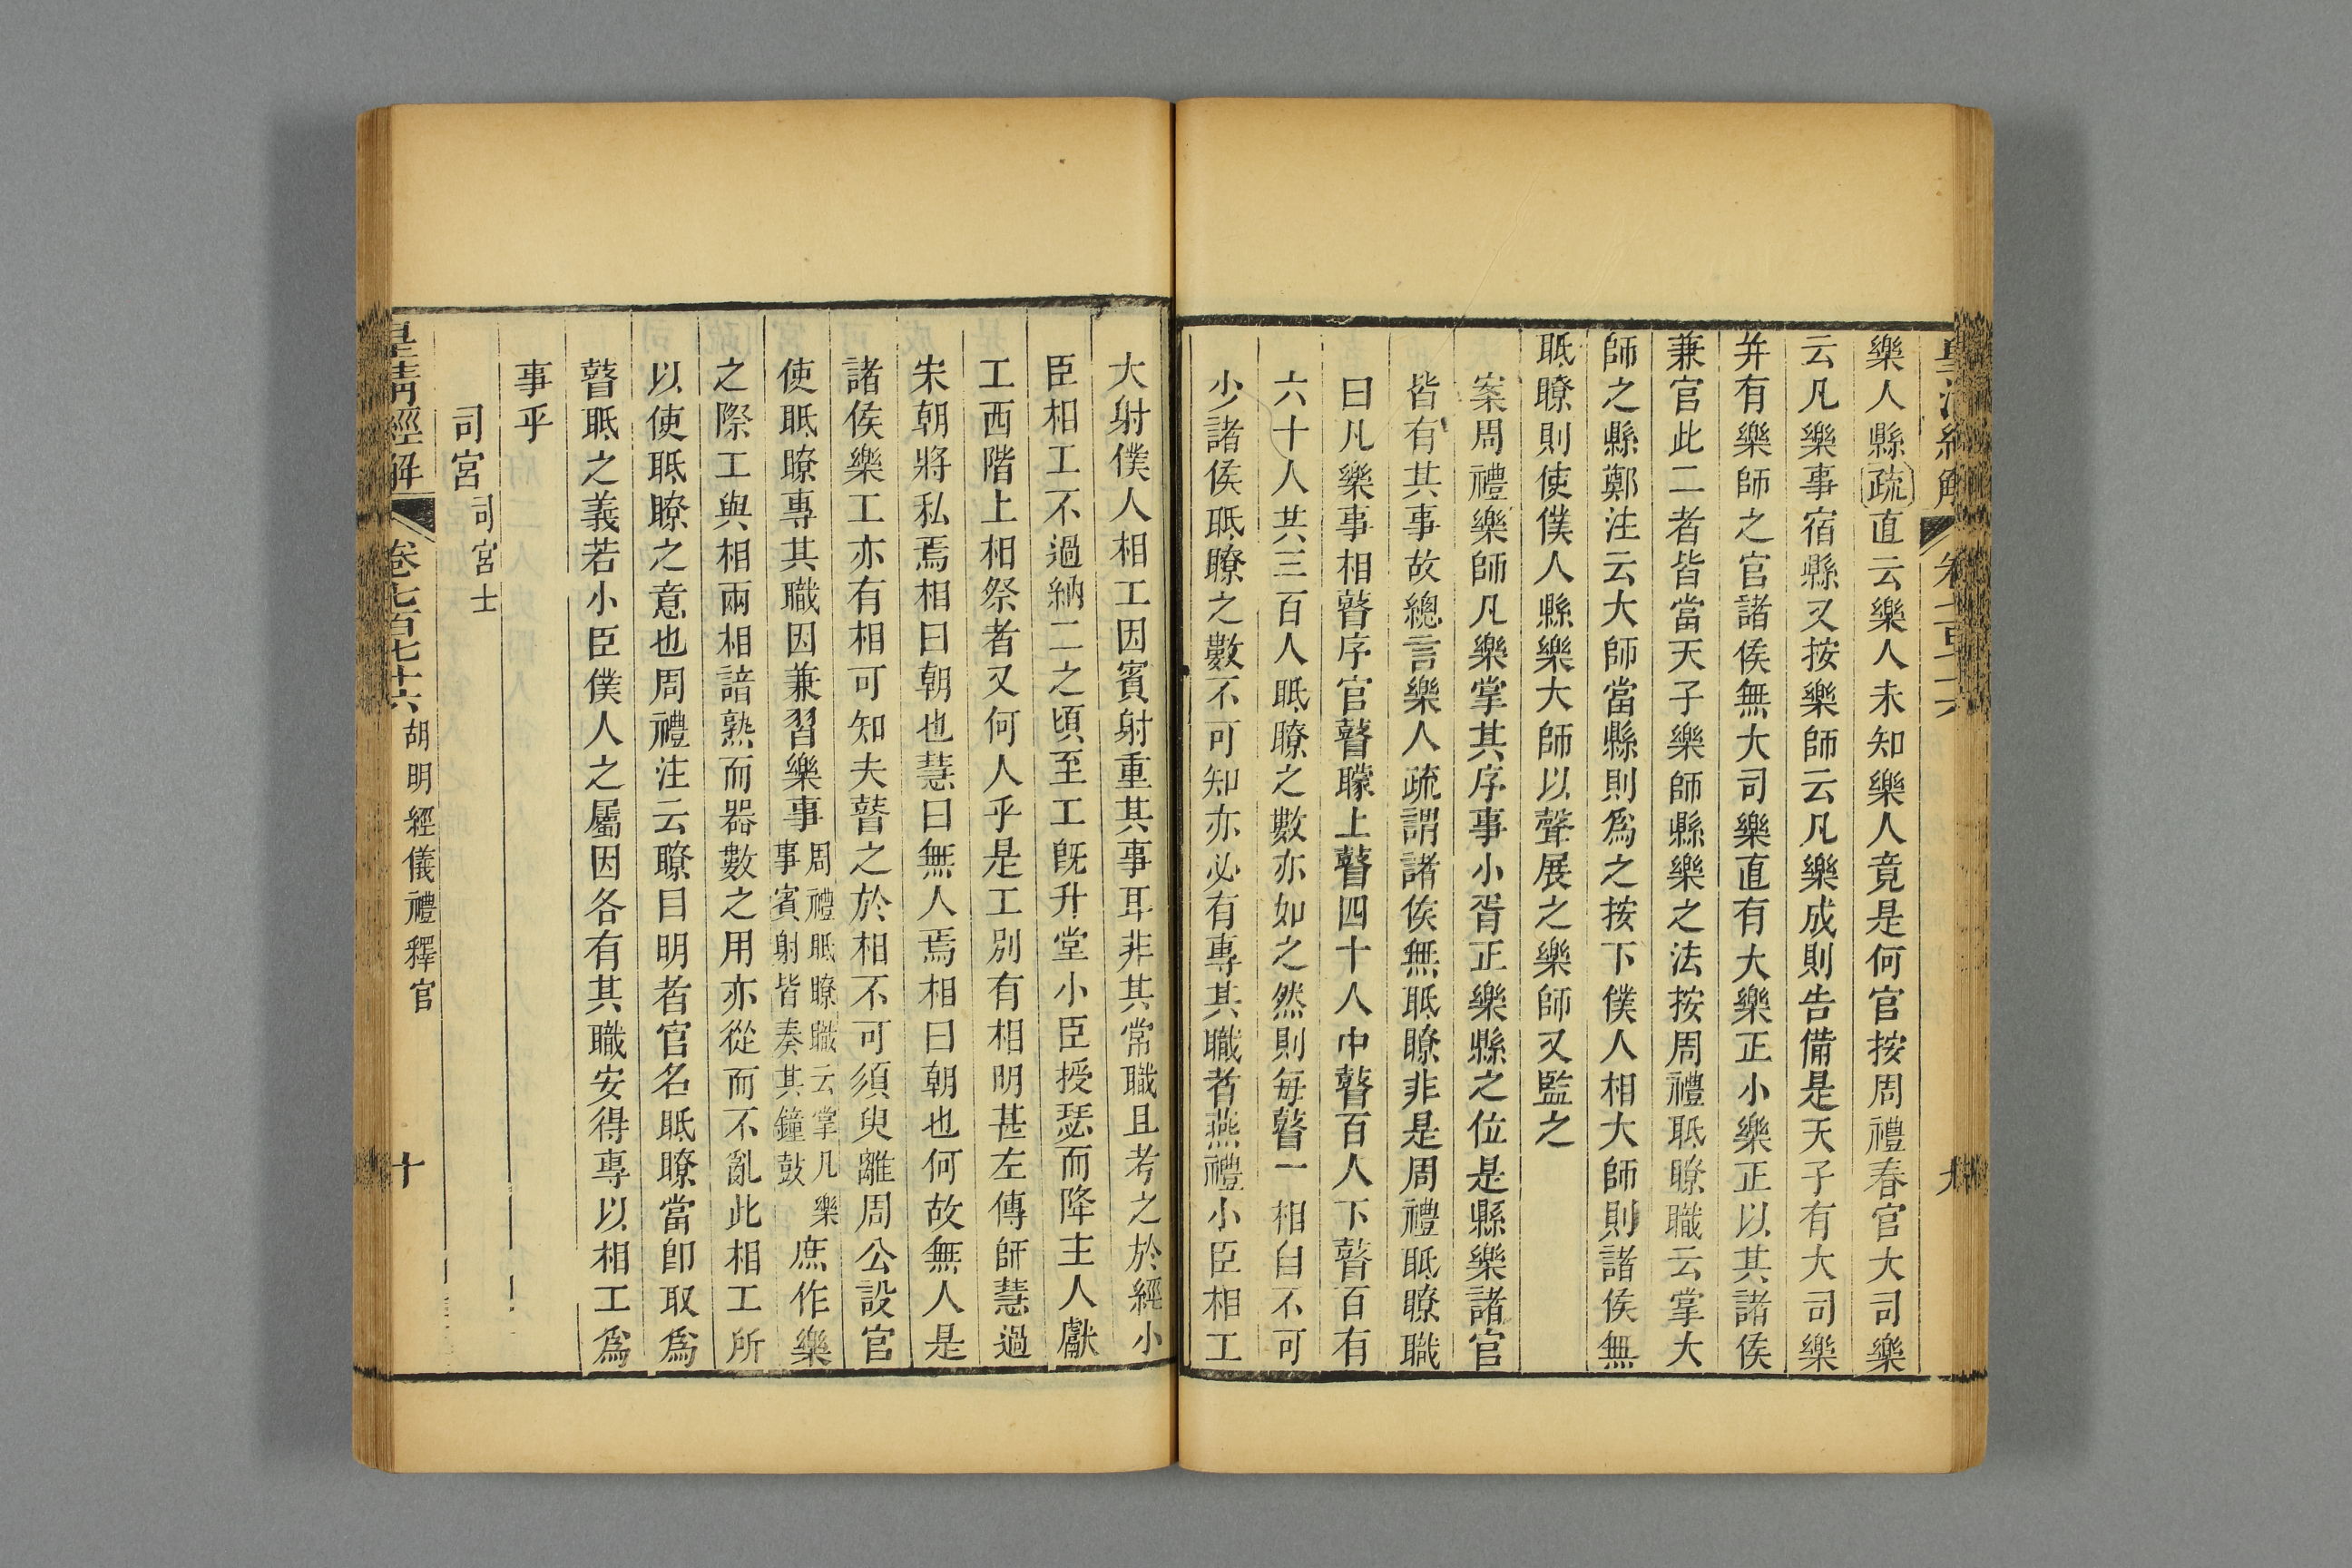 樂人縣疏直云樂人未知樂人竟是何官按周禮春官大司樂
云凡樂事宿縣又按樂師云凡樂成則告備是天子有大司樂
并有樂師之官諸侯無大司樂直有大樂正小樂正以其諸侯
兼官此二者皆當天子樂師縣樂之法按周禮眡瞭職云掌大
師之縣鄭注云大師當縣則爲之按下僕人相大師則諸侯無
眡瞭則使僕人縣樂大師以聲展之樂師又監之
案周禮樂師凡樂掌其序事小胥正樂縣之位是縣樂諸官
皆有其事故總言樂人疏謂諸侯無眡瞭非是周禮眡瞭職
曰凡樂事相瞽序官瞽矇上瞽四十人中瞽百人下瞽百有
六十人共三百人眡瞭之數亦如之然則每瞽一相自不可
少諸侯眡瞭之數不可知亦必有專其職者燕禮小臣相工
大射僕人相工因賓射重其事耳非其常職且考之於經小
臣相工不過納二之頃至工旣升堂小臣授瑟而降主人獻
工西階上相祭者又何人乎是工別有相明甚左傳師慧過
宋朝將私焉相曰朝也慧曰無人焉相曰朝也何故無人是
諸侯樂工亦有相可知夫瞽之於相不可須臾離周公設官
使眡瞭專其職因兼習樂事周禮眡瞭職云掌凡樂事賓射皆奏其鐘鼓庶作樂
之際工與相兩相諳熟而器數之用亦從而不亂此相工所
以使眡瞭之意也周禮注云瞭目明者官名眡瞭當卽取爲
瞽眡之義若小臣僕人之屬因各有其職安得專以相工爲
事乎
司宮司宮士
皇淸經解 卷七百七十六 胡明經儀禮釋官 十